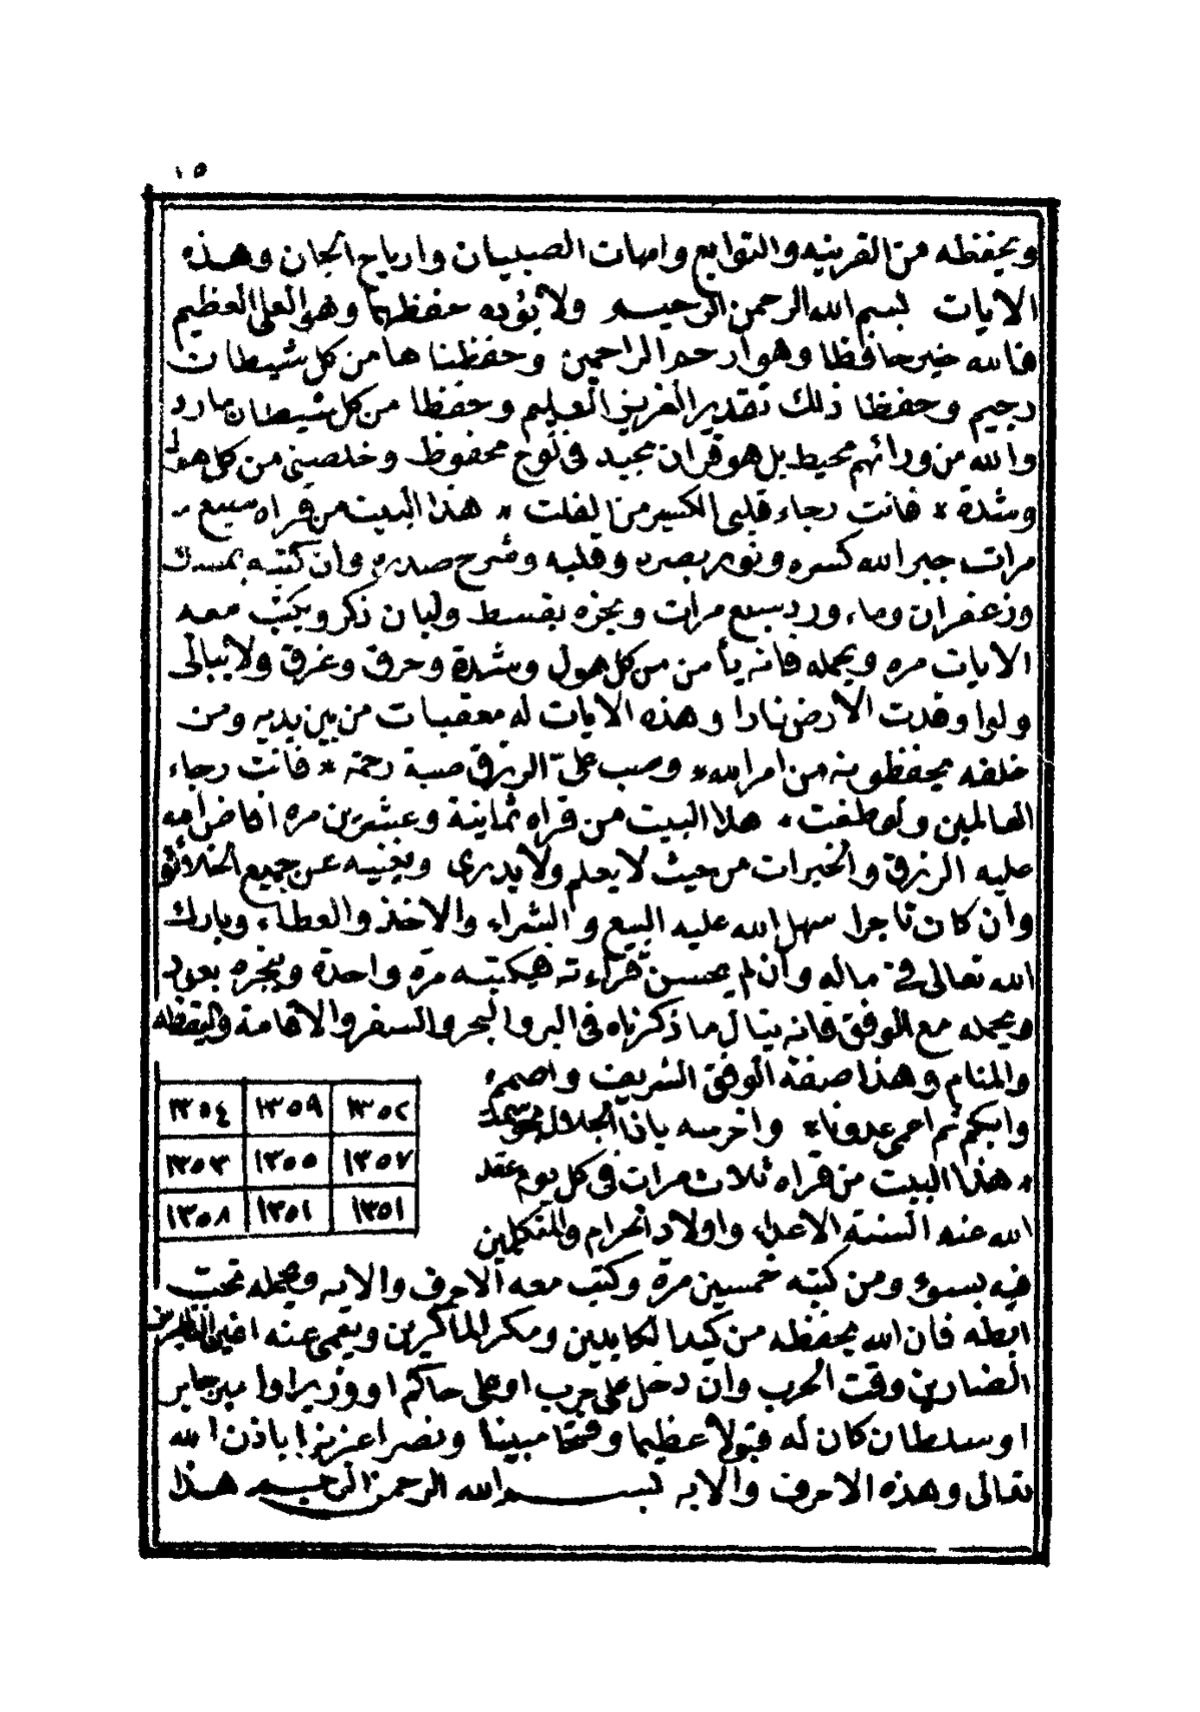 ١٥
ويحفظه من القرينه والتوابع وامهات الصبيان وارياح الجان وهذه
الايات بسم الله الرحمن الرحيم ولا يؤده حفظهما وهو العلى العظيم
فالله خير حافظا وهو ارحم الراحمين وحفظنا ها من كل شيطان
رجيم وحفظا ذلك تقدير العزيز العليم وحفظا من كل شيطان مارد
والله من ورائهم محيط بل هو قران مجيد فى لوح محفوظ وخلصنى من كل هول
وشدة * فانت رجاء قلبى الكسير من * هذا البيت من قراه سبع
مرات جبر الله كسره ونور بصره وقلبه وشرح صدره وان كتبه بمسك
وزعفران وماء ورد سبع مرات وبخره بقسط ولبان ذكر ويكتب معه
الايات مره ويحمله فانه يأمن من كل هول وشدة وحرق وغرق ولا يبالى
ولوا وقدت الارض نارا وهذه الايات له معقبات من بين يديه ومن
خلفه يحفظونه من امر الله * وصب علىّ الرزق صبة رحمة * فانت رجاء
العالمين ولو طغت * هذا البيت من قراه ثمانية وعشرين مره افاض الله
عليه الرزق والخيرات من حيث لا يعلم ولا يدرى ويغنيه عن جميع الخلائق
وان كان تاجرا سهل الله عليه البيع والشراء والاخذ والعطاء وبارك
الله تعالى فى ماله وان لم يحسن قراءته فيكتبه مرة واحدة ويبخره بعود
ويحمله مع الوفق فانه ينال ما ذكرناه فى البر والبحر والسفر والاقامة واليقظه
والمنام وهذا صفة الوفق الشريف واصمم
وابكم ثم اعمى عدونا * واخرسه ياذا الجلال
* هذا البيت من قراه ثلاث مرات فى كل يوم عقد
الله عنه السنة الاعداء واولاد الحرام والمتكلمين
١٣٥٢ ١٣٥٩ ١٣٥٤
١٣٥٧ ١٣٥٥ ١٣٥٣
١٣٥١ ١٣٥١ ١٣٥٨
فيه بسوء ومن كتبه خمسين مرة وكتب معه الاحرف والايه ويحمله تحت
ابطه فان الله يحفظه من كيد الكايدين ومكر الماكرين ويعمى عنه اعين الناظرين
الضارين وقت الحرب وان دخل على حرب او على حاكم او وزير او امير جابر
او سلطان كان له قبولا عظيما وفتحا مبينا ونصرا عزيزا باذن الله
تعالى وهذه الاحرف والايه بسم الله الرحمن الرحيم هذا